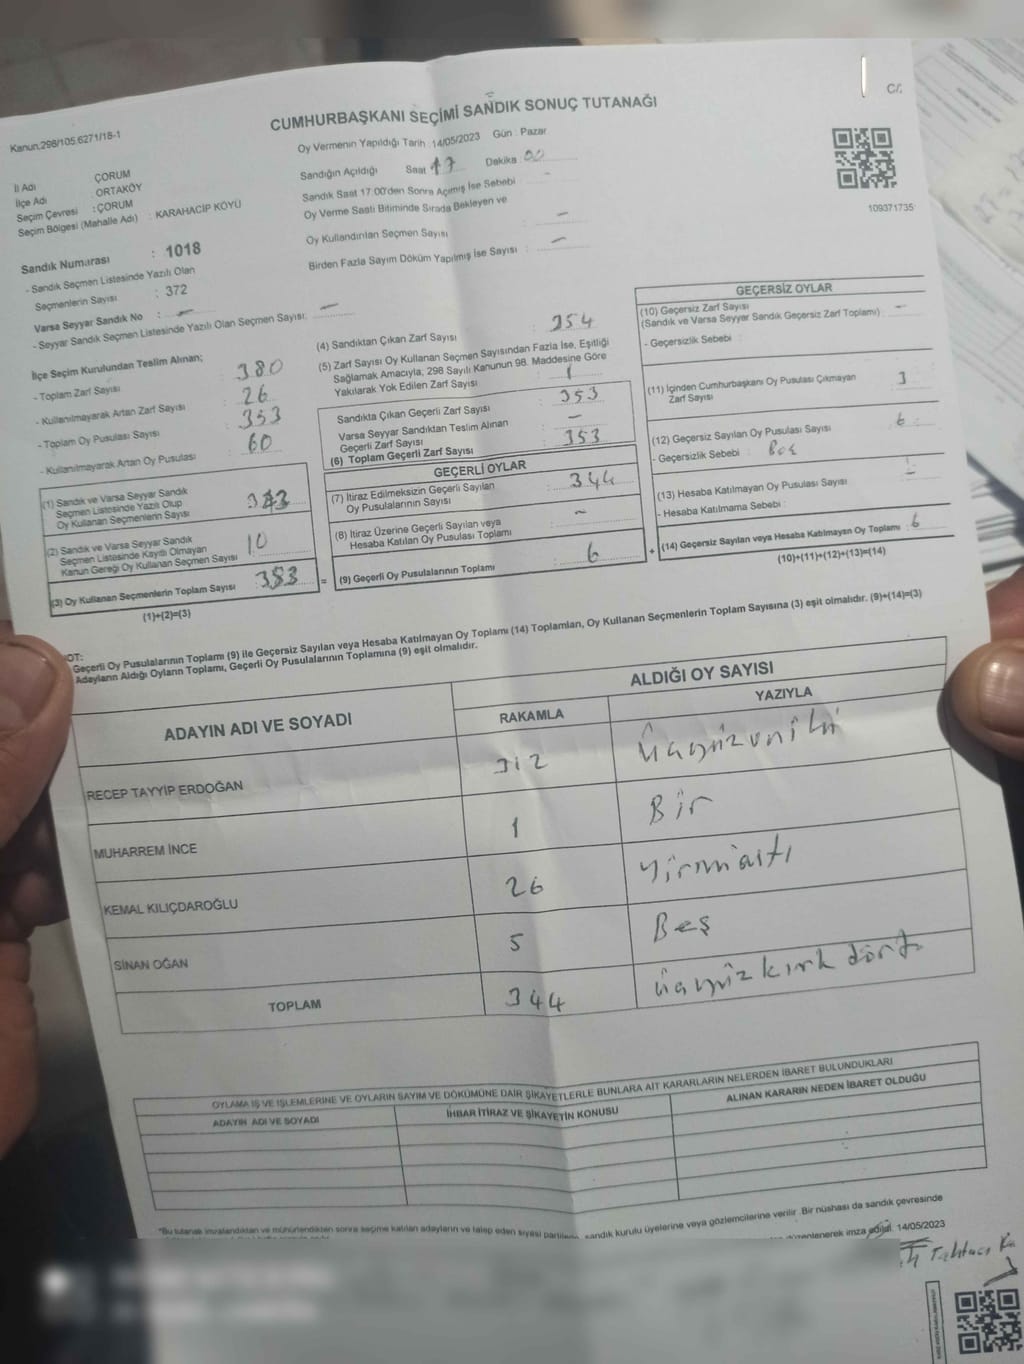 CUMHURBAŞKANI SEÇİMİ SANDIK SONUÇ TUTANAĞI
C/.
Kanun.298/105.6271/18-1
Oy Vermenin Yapıldığı Tarih :14/05/2023 Gün : Pazar
109371735
İl Adı ÇORUM
İlçe Adı ORTAKÖY
Seçim Çevresi : ÇORUM
Seçim Bölgesi (Mahalle Adı) : KARAHACİP KÖYÜ
Sandık Numarası : 1018
- Sandık Seçmen Listesinde Yazılı Olan
Seçmenlerin Sayısı : 372
Varsa Seyyar Sandık No : -
- Seyyar Sandık Seçmen Listesinde Yazılı Olan Seçmen Sayısı: -
Sandığın Açıldığı Saat 17 Dakika 00
Sandık Saat 17:00'den Sonra Açılmış İse Sebebi : -
Oy Verme Saati Bitiminde Sırada Bekleyen ve
Oy Kullandırılan Seçmen Sayısı : -
Birden Fazla Sayım Döküm Yapılmış İse Sayısı : -
İlçe Seçim Kurulundan Teslim Alınan;
- Toplam Zarf Sayısı : 380
- Kullanılmayarak Artan Zarf Sayısı : 26
- Toplam Oy Pusulası Sayısı : 353
- Kullanılmayarak Artan Oy Pusulası : 60
(1) Sandık ve Varsa Seyyar Sandık
Seçmen Listesinde Yazılı Olup
Oy Kullanan Seçmenlerin Sayısı :
(2) Sandık ve Varsa Seyyar Sandık
Seçmen Listesinde Kayıtlı Olmayan
Kanun Gereği Oy Kullanan Seçmen Sayısı : 10
(3) Oy Kullanan Seçmenlerin Toplam Sayısı : 353
(1)+(2)=(3)
(4) Sandıktan Çıkan Zarf Sayısı : 354
(5) Zarf Sayısı Oy Kullanan Seçmen Sayısından Fazla İse, Eşitliği
Sağlamak Amacıyla; 298 Sayılı Kanunun 98. Maddesine Göre
Yakılarak Yok Edilen Zarf Sayısı : 1
Sandıkta Çıkan Geçerli Zarf Sayısı : 353
Varsa Seyyar Sandıktan Teslim Alınan
Geçerli Zarf Sayısı : -
(6) Toplam Geçerli Zarf Sayısı : 353
GEÇERLİ OYLAR
(7) İtiraz Edilmeksizin Geçerli Sayılan
Oy Pusulalarının Sayısı : 344
(8) İtiraz Üzerine Geçerli Sayılan veya
Hesaba Katılan Oy Pusulası Toplamı : -
= (9) Geçerli Oy Pusulalarının Toplamı : 6 +
GEÇERSİZ OYLAR
(10) Geçersiz Zarf Sayısı : -
(Sandık ve Varsa Seyyar Sandık Geçersiz Zarf Toplamı)
- Geçersizlik Sebebi :
(11) İçinden Cumhurbaşkanı Oy Pusulası Çıkmayan
Zarf Sayısı : 3
(12) Geçersiz Sayılan Oy Pusulası Sayısı : 6
- Geçersizlik Sebebi : Boş
(13) Hesaba Katılmayan Oy Pusulası Sayısı : -
- Hesaba Katılmama Sebebi :
(14) Geçersiz Sayılan veya Hesaba Katılmayan Oy Toplamı : 6
(10)+(11)+(12)+(13)=(14)
NOT:
Geçerli Oy Pusulalarının Toplamı (9) ile Geçersiz Sayılan veya Hesaba Katılmayan Oy Toplamı (14) Toplamları, Oy Kullanan Seçmenlerin Toplam Sayısına (3) eşit olmalıdır. (9)+(14)=(3)
Adayların Aldığı Oyların Toplamı, Geçerli Oy Pusulalarının Toplamına (9) eşit olmalıdır.
ADAYIN ADI VE SOYADI ALDIĞI OY SAYISI
RAKAMLA YAZIYLA
RECEP TAYYİP ERDOĞAN 312 üçyüzoniki
MUHARREM İNCE 1 Bir
KEMAL KILIÇDAROĞLU 26 yirmialtı
SİNAN OĞAN 5 Beş
TOPLAM 344 üçyüzkırkdört
OYLAMA İŞ VE İŞLEMLERİNE VE OYLARIN SAYIM VE DÖKÜMÜNE DAİR ŞİKAYETLERLE BUNLARA AİT KARARLARIN NELERDEN İBARET BULUNDUKLARI
ADAYIN ADI VE SOYADI İHBAR İTİRAZ VE ŞİKAYETİN KONUSU ALINAN KARARIN NEDEN İBARET OLDUĞU
*Bu tutanak imzalandıktan ve mühürlendikten sonra seçime katılan adayların ve talep eden siyasi partilerin sandık kurulu üyelerine veya gözlemcilerine verilir. Bir nüshası da sandık çevresinde
düzenlenerek imza edildi. 14/05/2023